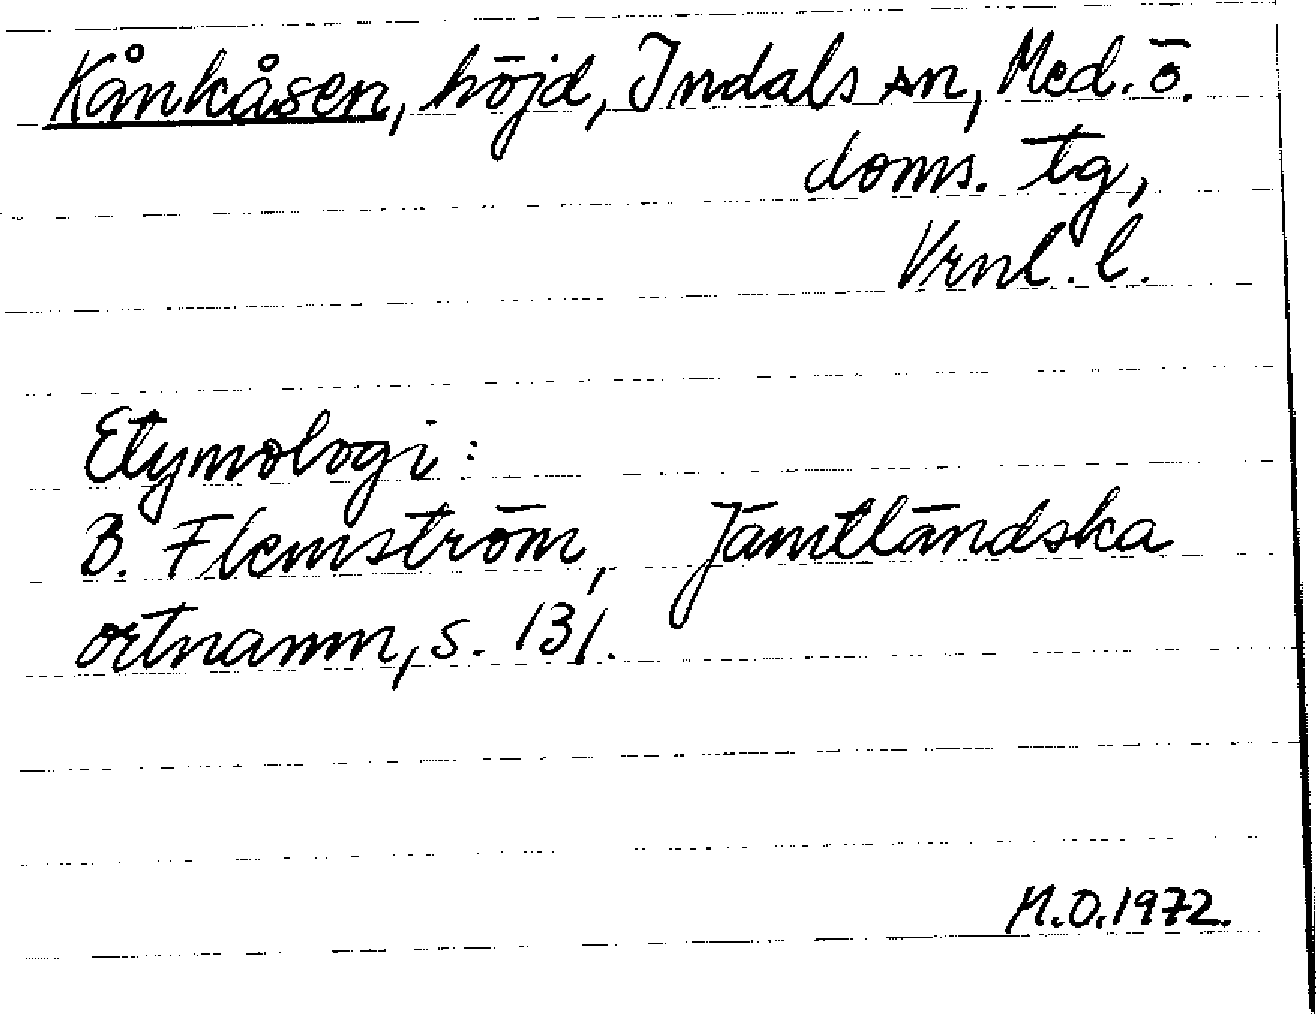 Kånkåsen, höjd, Indals sn, Med. ö.
doms. tg,
Vrnl. l.
Etymologi:
B. Flemström, Jämtländska
ortnamn, s. 131.
M.O. 1972.